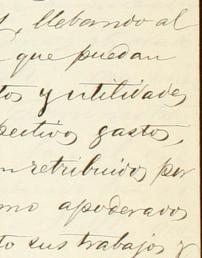 , llevando al
que puedan
tos y utilidades
pectivos gastos,
n retribuidos por
mo apoderados
to sus trabajos y